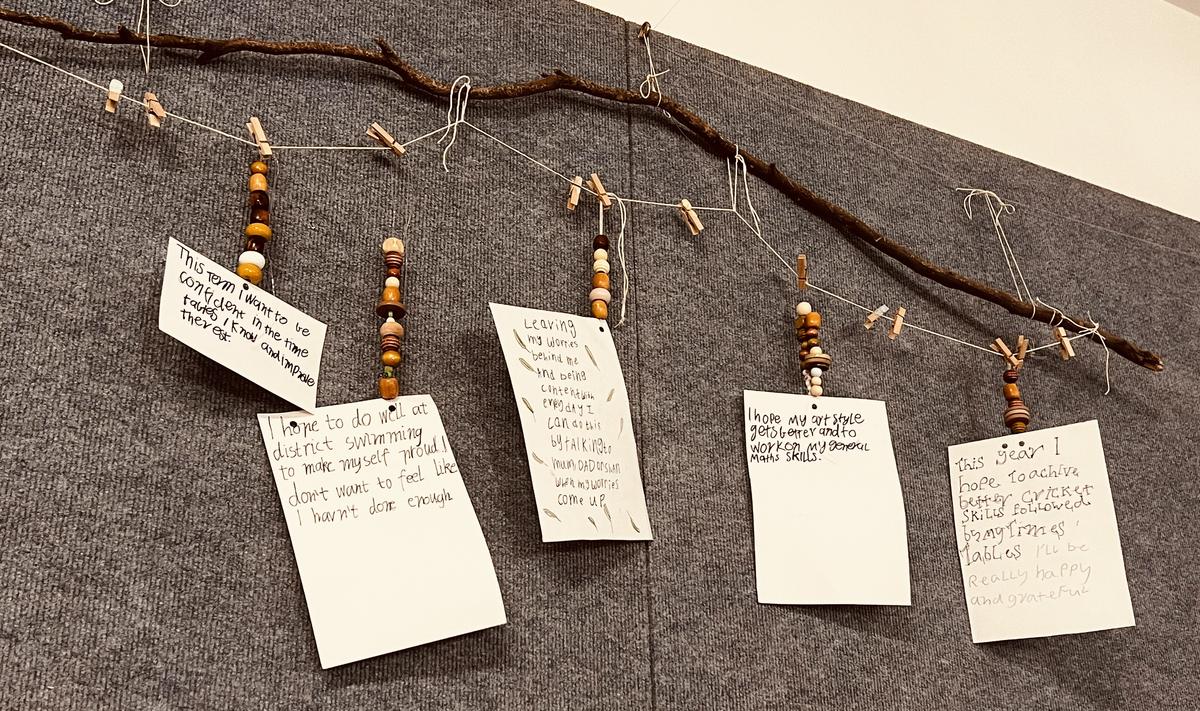 This Term i want to be
confident in the time
tables I know and improve
the rest.
I hope to do well at
district swimming
to make myself proud. I
don't want to feel like
I havn't done enough.
Leaving
my worries
behind me
And being
content with
everyday I
can do this
by talking to
mum DAD or shan
when my worries
come up.
I hope my art style
gets better and to
work on my general
Maths skills.
This year I
hope To achive
better Cricket
skills followed
by my Times
Tables I'll be
Really happy
and grateful